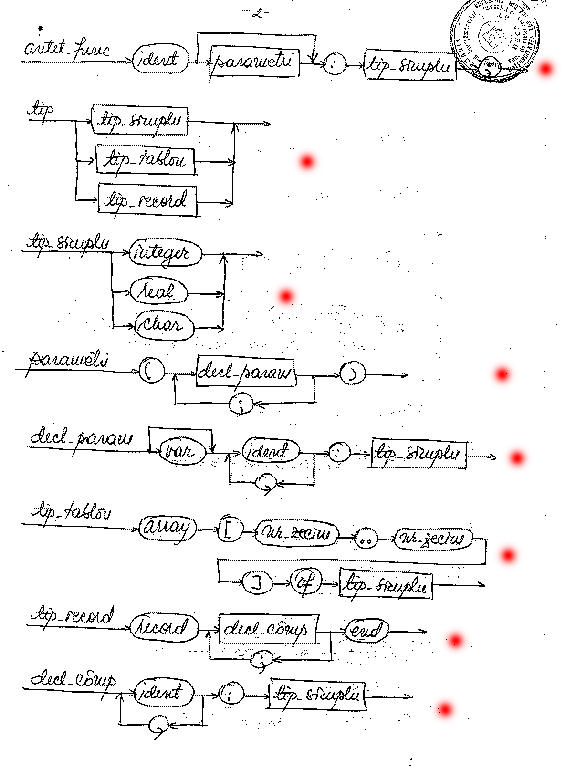 -2-
antet-func ident parametri : tip-simplu ;
tip tip-simplu
tip-tablou
tip-record
tip-simplu integer
real
char
parametri ( decl-param )
;
decl-param var ident : tip-simplu
,
tip-tablou array [ nr-zecim .. nr-zecim
] of tip-simplu
tip-record record decl-comp end
;
decl-comp ident : tip-simplu
,